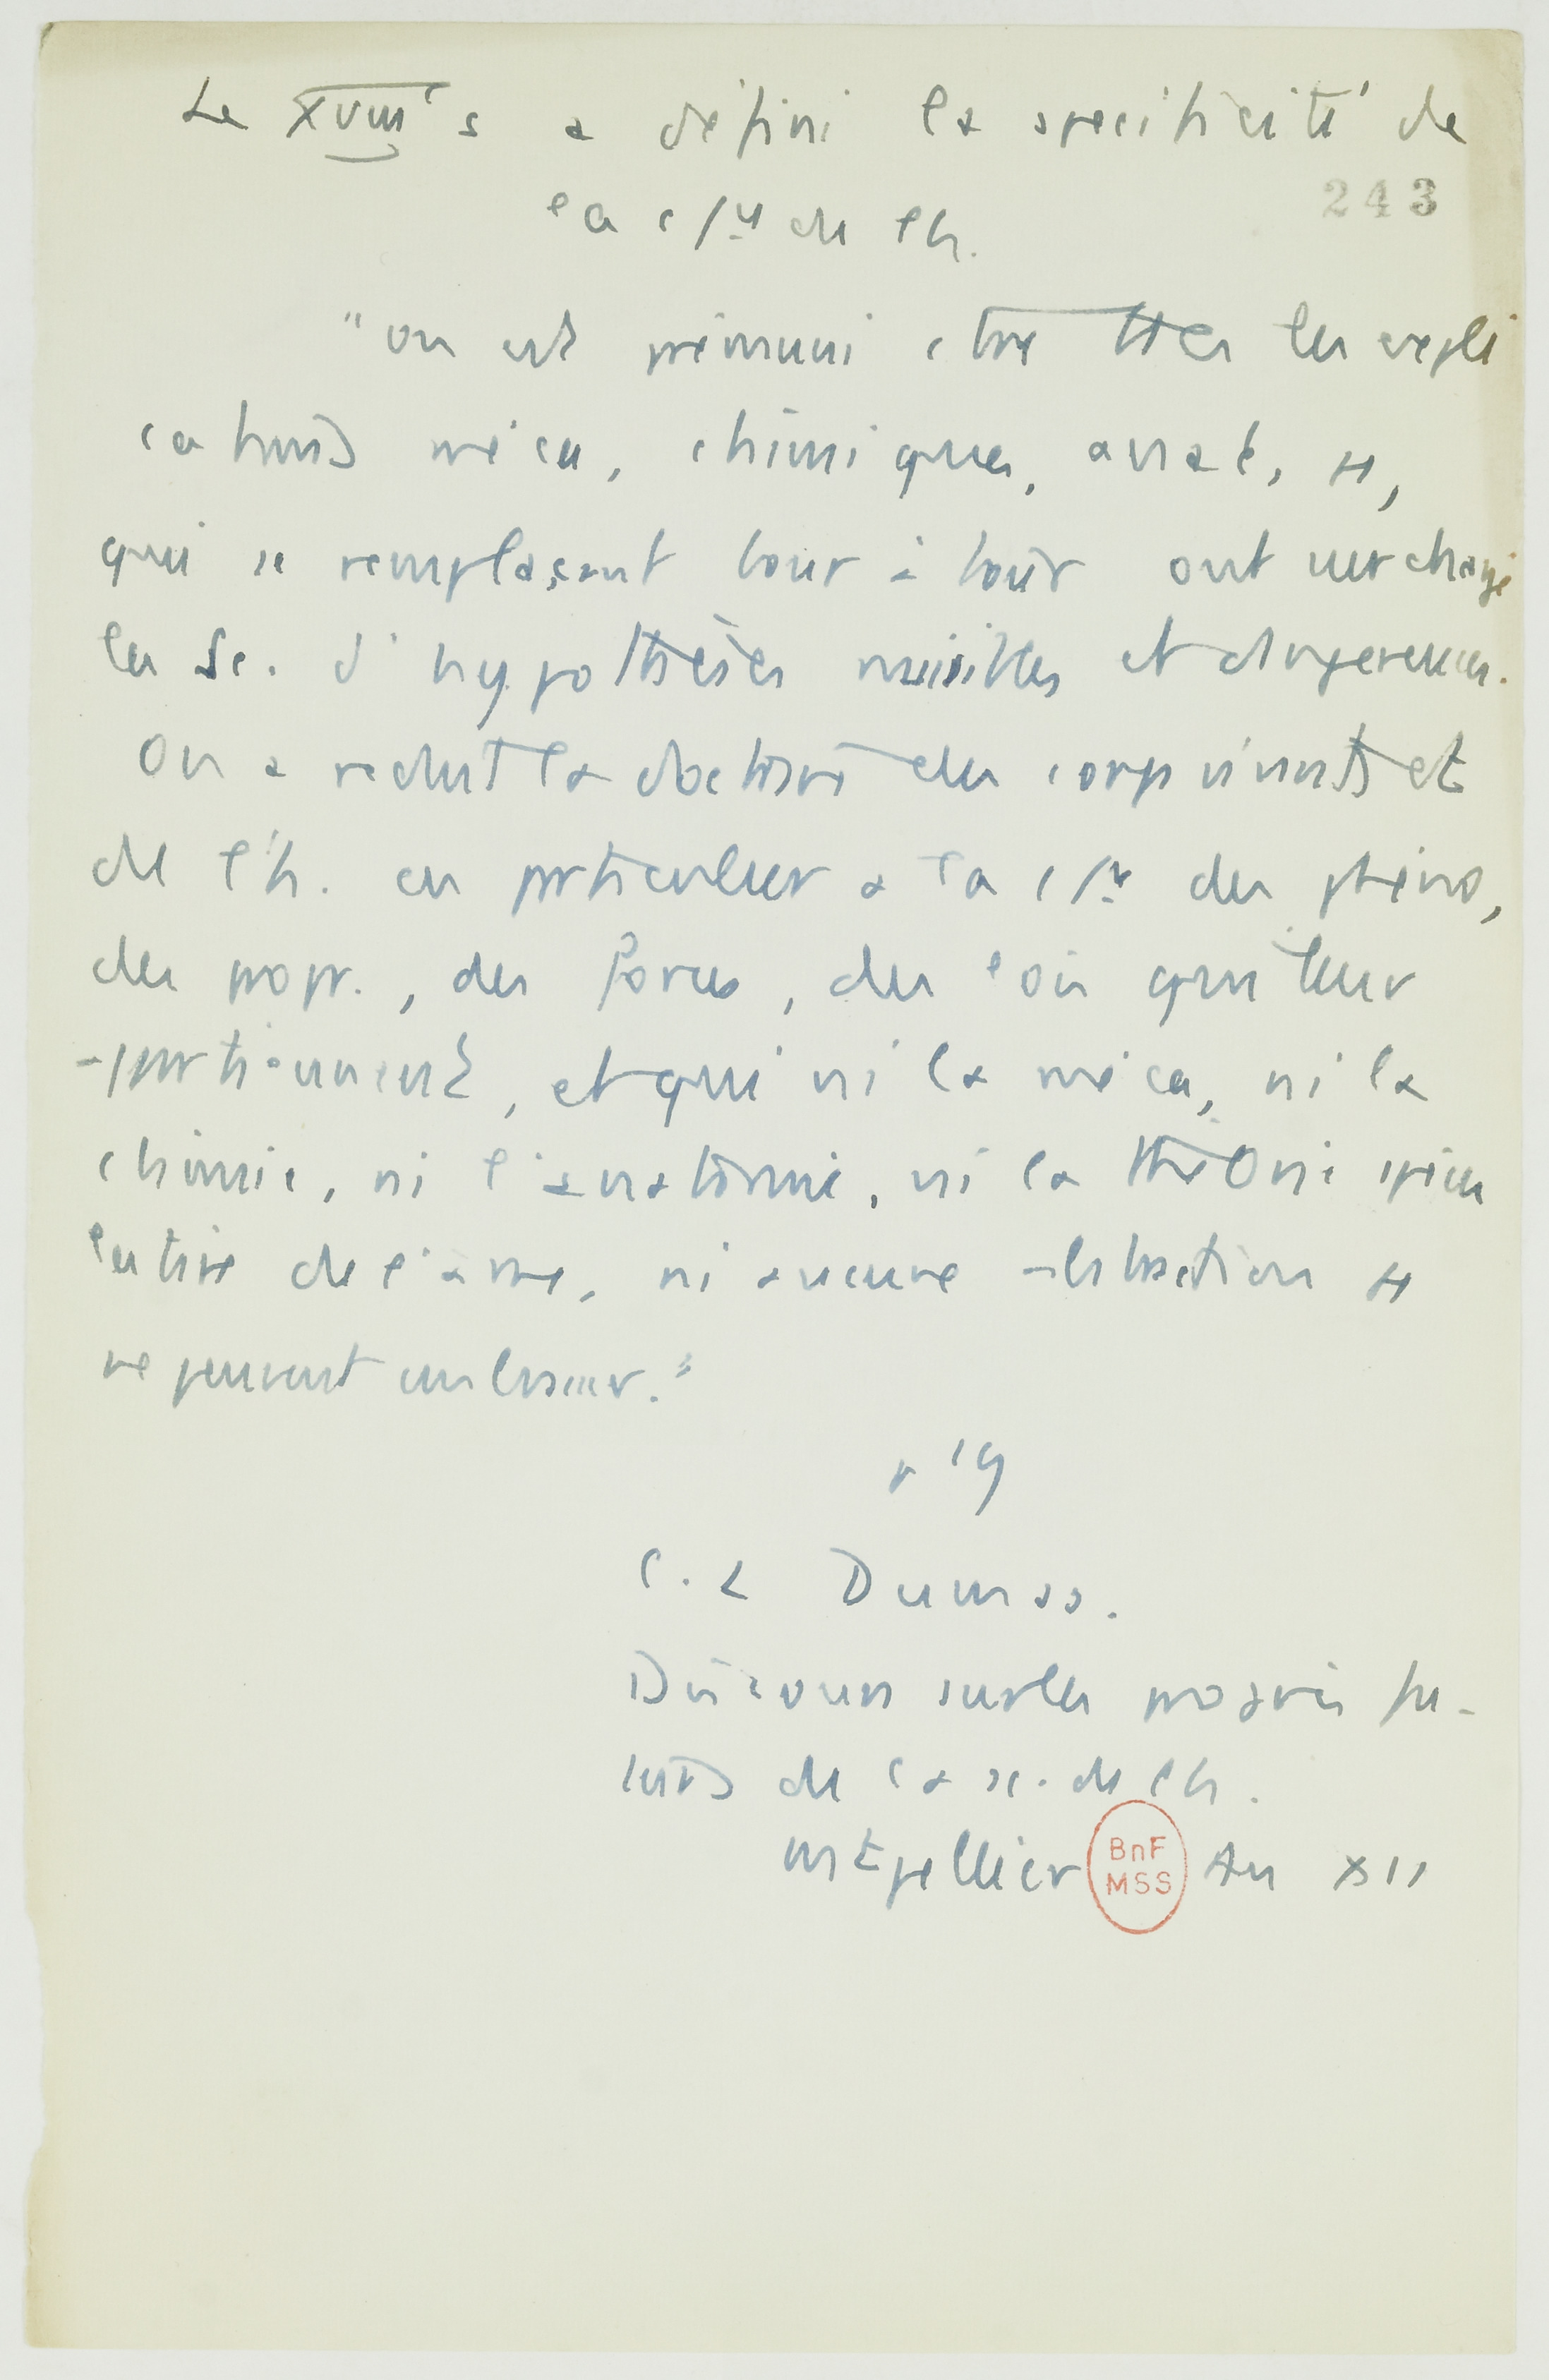 Le XVIII s a défini la specificité de
la c/ de lh.
243
"on est prémuni ctre ttes les expli
cations méca, chimiques, anat,
qui se remplaçant tour à tour ont surchargé
les Sc. d'hypothèses nuisibles et dangereuses.
On a reduit la doctrine des corps vivants et
de l'h. en particulier a la c/ des phéno,
des propr., des forces, des lois qui leur
appartiennent, et qui ni la méca, ni la
chimie, ni l'anatomie, ni la théorie spécu
lative de l'âme, ni aucune abstraction
ne peuvent embrasser."
19
C. L Dumas.
Discours sur les progrès fu-
turs de la sc. de lh.
Mtpellier An XII
BnF
MSS